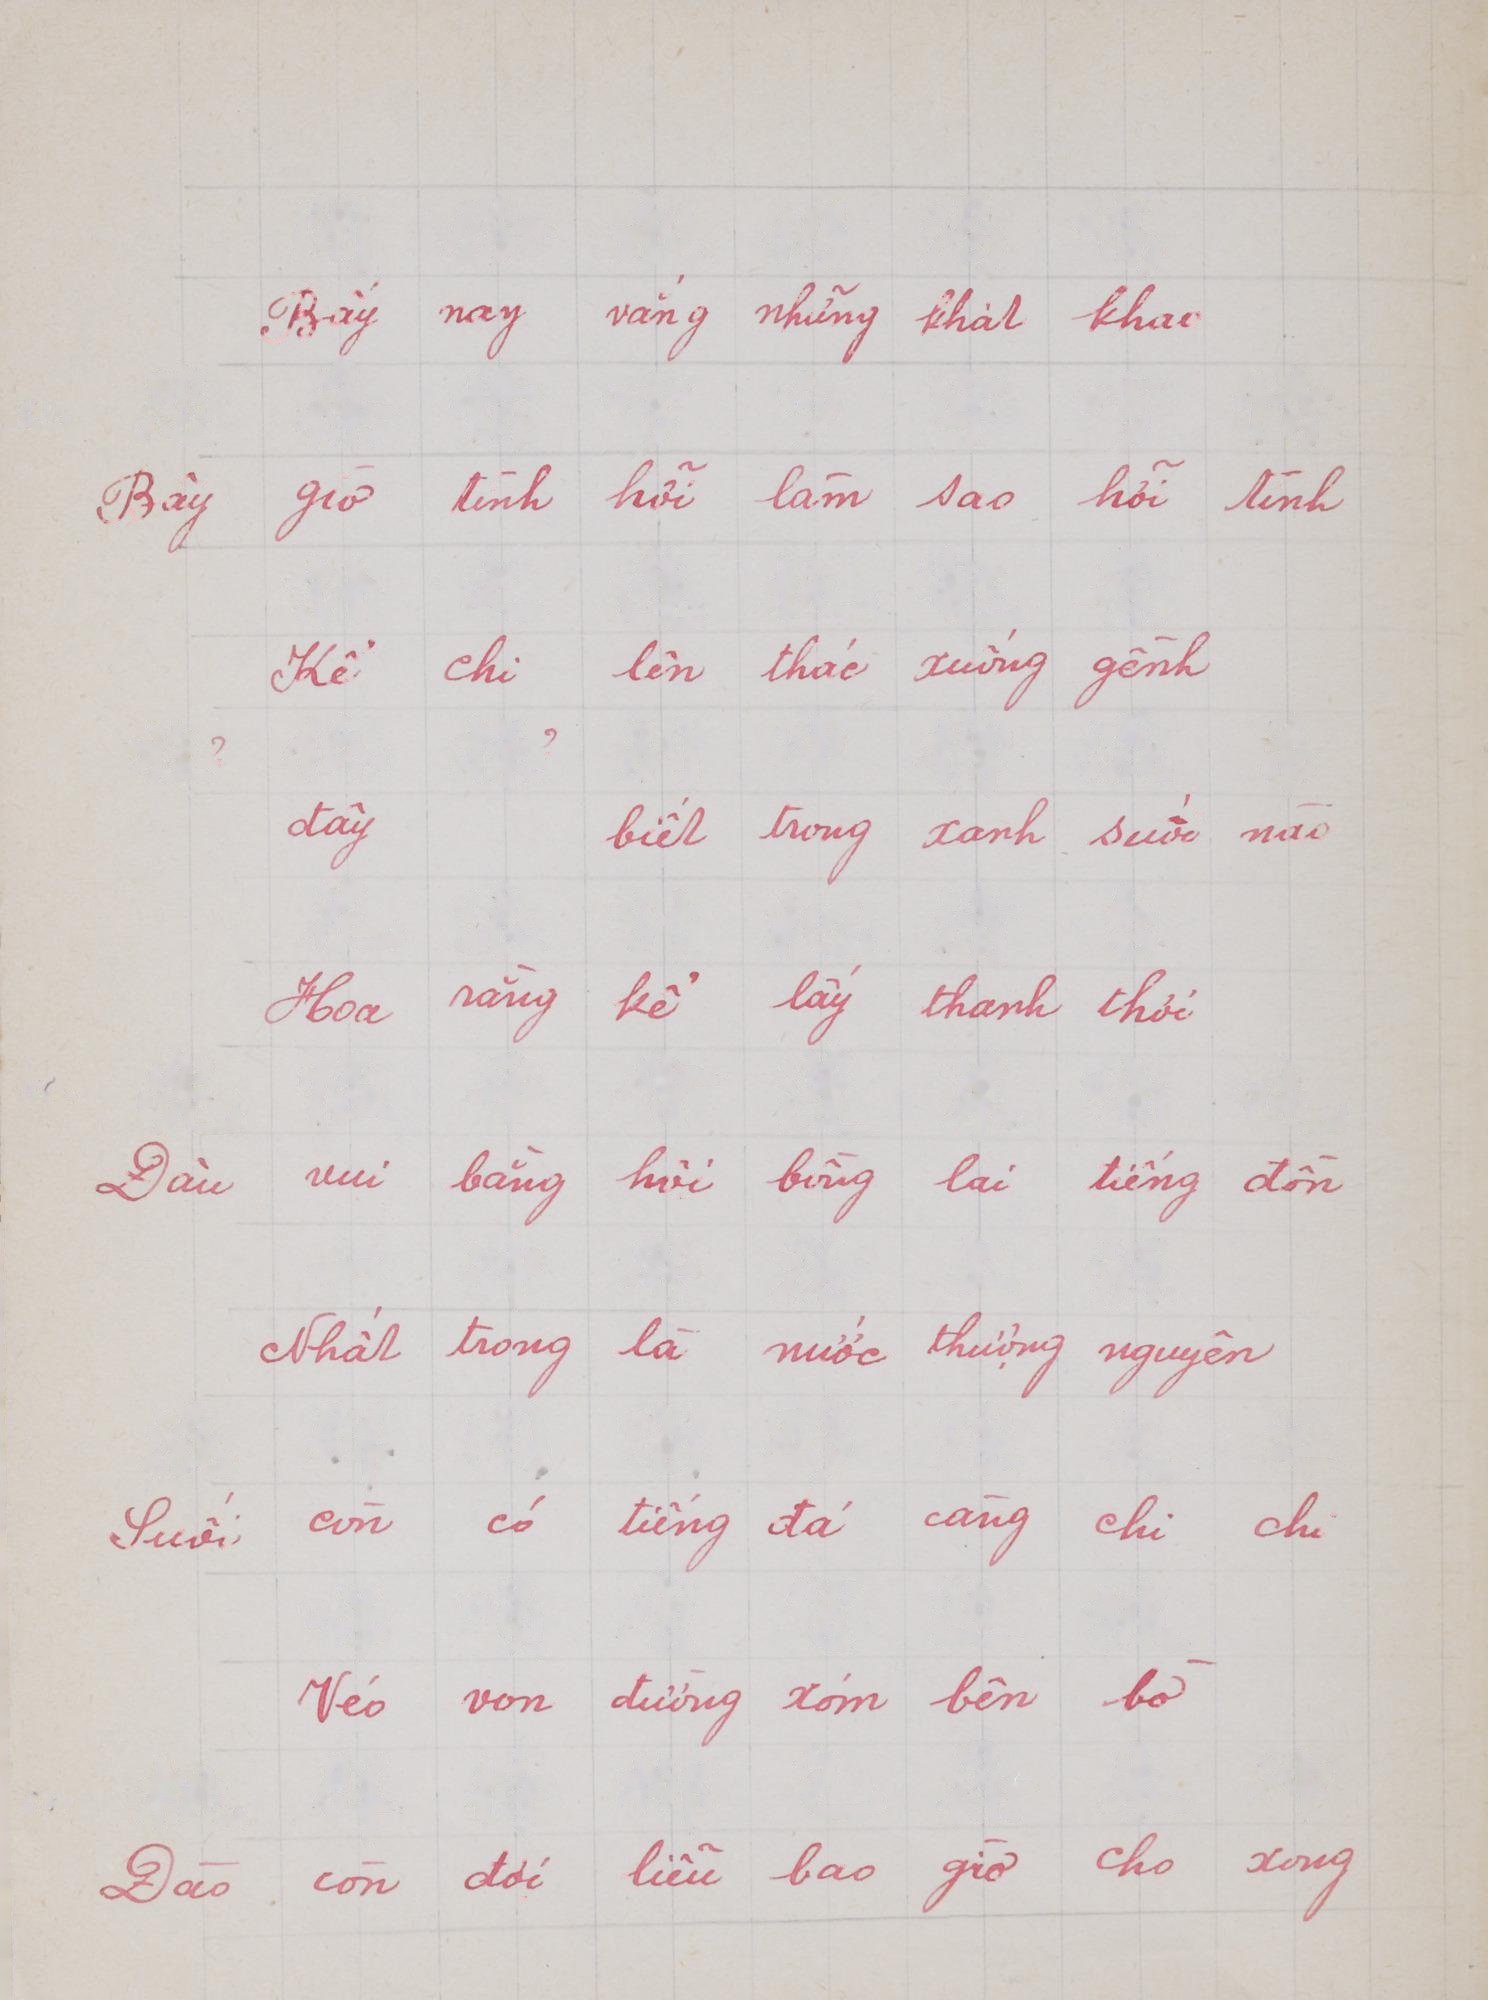 Bấy nay vắng những khát khao
Bây giờ tình hỡi làm sao hỡi tình
Kể chi lên thác xuống gềnh
? ?
đây biết trong xanh suối nào
Hoa rằng kể lấy thanh thơi
Dầu vui bằng hội bồng lai tiếng đồn
Nhất trong là nước thượng nguyên
Suối còn có tiếng đá càng chi chi
Véo von đường xóm bên bờ
Đào còn đợi liễu bao giờ cho xong